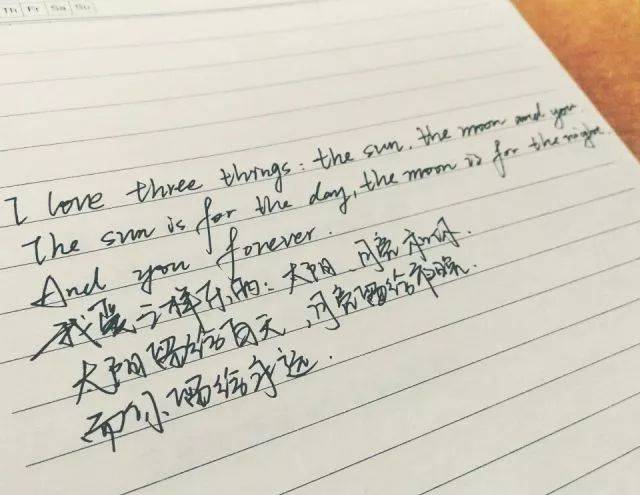 Th Fr Sa Su
I love three things: the sun, the moon and you.
The sun is for the day, the moon is for the night
And you forever.
我爱三样东西: 太阳、月亮和你.
太阳留给白天, 月亮留给夜晚.
而你, 留给永远.